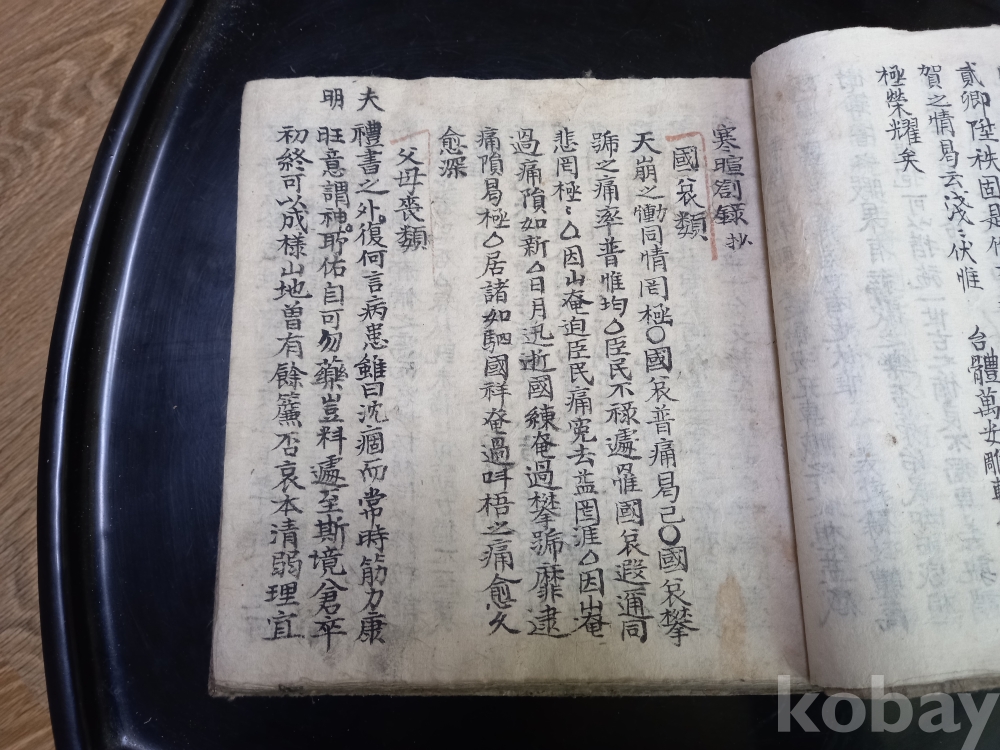 貳卿陞秩固是
賀之情曷云淺〻伏惟 台體萬安
極榮耀矣
寒暄箚錄 抄
國哀類
天崩之慟同情罔極○國哀普痛曷已○國哀攀
號之痛率普惟均△臣民不祿遽罹國哀遐邇同
悲罔極〻△因山奄迫臣民痛冤去益罔涯△因山奄
過痛隕如新△日月迅逝國練奄過攀號靡逮
痛隕曷極△居諸如駟國祥奄過叫梧之痛愈久
愈深
父母喪類
夫 禮書之外復何言病患雖曰沈痼而常時筋力康
明 旺意謂神耶佑自可勿藥豈料遽至斯境倉卒
初終可以成樣山地曾有餘麓否哀本清弱理宜
kobay